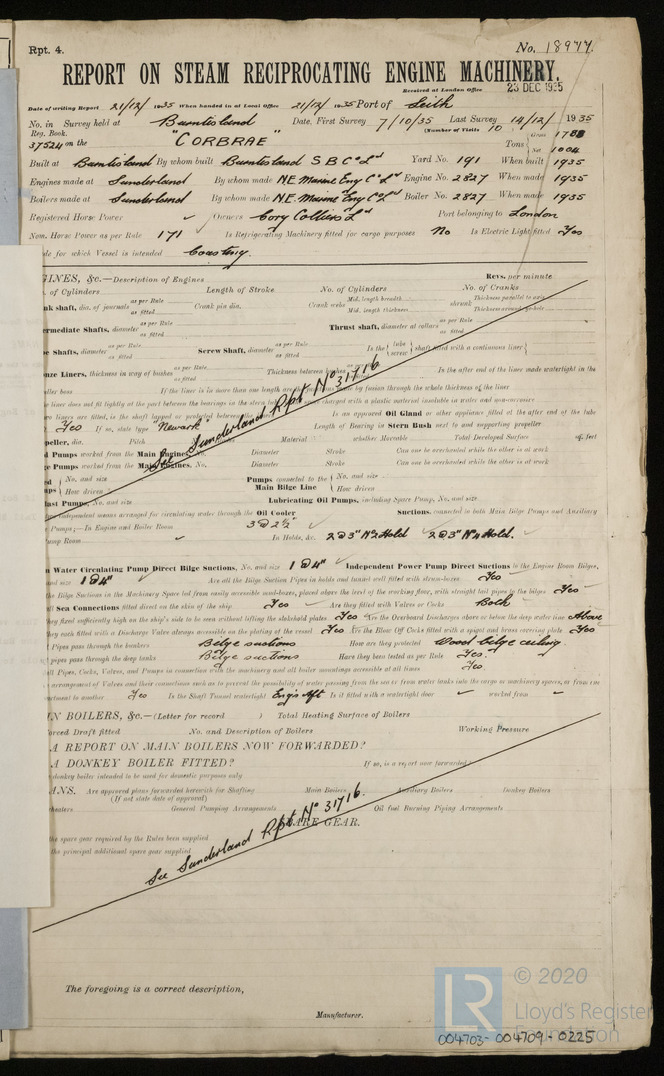 Rpt. 4. No. 18977.
REPORT ON STEAM RECIPROCATING ENGINE MACHINERY.
Received at London Office 23 DEC 1935
Date of writing Report 21/12/1935 When handed in at Local Office 21/12/1935 Port of Leith
No. in Survey held at Burntisland Date, First Survey 7/10/35 Last Survey 14/12/1935
Reg. Book. (Number of Visits 10
37524 on the "CORBRAE" Tons Gross 1788
Net 1004
Built at Burntisland By whom built Burntisland S B Co Ld Yard No. 191 When built 1935
Engines made at Sunderland By whom made N.E. Marine Eng Co Ld Engine No. 2827 When made 1935
Boilers made at Sunderland By whom made N.E. Marine Eng Co Ld Boiler No. 2827 When made 1935
Registered Horse Power Owners Cory Colliers Ld Port belonging to London
Nom. Horse Power as per Rule 171 Is Refrigerating Machinery fitted for cargo purposes No Is Electric Light fitted Yes
de for which Vessel is intended Coasting.
GINES, &c.—Description of Engines Revs. per minute
. of Cylinders Length of Stroke No. of Cylinders No. of Cranks
nk shaft, dia. of journals as per Rule as fitted Crank pin dia. Crank webs Mid. length breadth Mid. length thickness shrunk Thickness parallel to axis
ermediate Shafts, diameter as per Rule as fitted Thrust shaft, diameter at collars as per Rule as fitted
be Shafts, diameter as per Rule as fitted Screw Shaft, diameter as per Rule as fitted Is the tube screw shaft fitted with a continuous liner
nze Liners, thickness in way of bushes as per Rule as fitted Thickness between bushes Is the after end of the liner made watertight in the
eller boss If the liner is in more than one length are the by fusion through the whole thickness of the liner
he liner does not fit tightly at the part between the bearings in the stern charged with a plastic material insoluble in water and non-corrosive
wo liners are fitted, is the shaft lapped or protected between the Is an approved Oil Gland or other appliance fitted at the after end of the tube
Yes If so, state type "Newark" Length of Bearing in Stern Bush next to and supporting propeller
peller, dia. Pitch Material whether Moveable Total Developed Surface sq. feet
See Sunderland Rpt No 31716
d Pumps worked from the Main Engines, No. Diameter Stroke Can one be overhauled while the other is at work
ge Pumps worked from the Main Engines, No. Diameter Stroke Can one be overhauled while the other is at work
No. and size Pumps connected to the No. and size
How driven Main Bilge Line How driven
last Pumps, No. and size Lubricating Oil Pumps, including Spare Pump, No. and size
independent means arranged for circulating water through the Oil Cooler Suctions, connected to both Main Bilge Pumps and Auxiliary
Pumps;—In Engine and Boiler Room 3 @ 2½"
ump Room In Holds, &c. 2 @ 3" No 2 Hold 2 @ 3" No 4 Hold.
n Water Circulating Pump Direct Bilge Suctions, No. and size 1 @ 4" Independent Power Pump Direct Suctions to the Engine Room Bilges,
nd size 1 @ 4" Are all the Bilge Suction Pipes in holds and tunnel well fitted with strum-boxes Yes
the Bilge Suctions in the Machinery Space led from easily accessible mud-boxes, placed above the level of the working floor, with straight tail pipes to the bilges Yes
all Sea Connections fitted direct on the skin of the ship Yes Are they fitted with Valves or Cocks Both
they fixed sufficiently high on the ship's side to be seen without lifting the stokehold plates Yes Are the Overboard Discharges above or below the deep water line Above
they each fitted with a Discharge Valve always accessible on the plating of the vessel Yes Are the Blow Off Cocks fitted with a spigot and brass covering plate Yes
t Pipes pass through the bunkers Bilge suctions How are they protected Wood bilge ceiling
t pipes pass through the deep tanks Bilge suctions Have they been tested as per Rule Yes.
all Pipes, Cocks, Valves, and Pumps in connection with the machinery and all boiler mountings accessible at all times Yes
arrangement of Valves and their connections such as to prevent the possibility of water passing from the sea or from water tanks into the cargo or machinery spaces, or from one
artment to another Yes Is the Shaft Tunnel watertight Eng's Aft Is it fitted with a watertight door worked from
IN BOILERS, &c.—(Letter for record ) Total Heating Surface of Boilers
orced Draft fitted No. and Description of Boilers Working Pressure
A REPORT ON MAIN BOILERS NOW FORWARDED?
A DONKEY BOILER FITTED? If so, is a report now forwarded?
donkey boiler intended to be used for domestic purposes only
ANS. Are approved plans forwarded herewith for Shafting Main Boilers Auxiliary Boilers Donkey Boilers
(If not state date of approval)
heaters General Pumping Arrangements Oil fuel Burning Piping Arrangements
SPARE GEAR.
See Sunderland Rpt No 31716.
the spare gear required by the Rules been supplied
the principal additional spare gear supplied
The foregoing is a correct description,
Manufacturer.
LR © 2020
Lloyd's Register
Foundation
004703-004709-0225